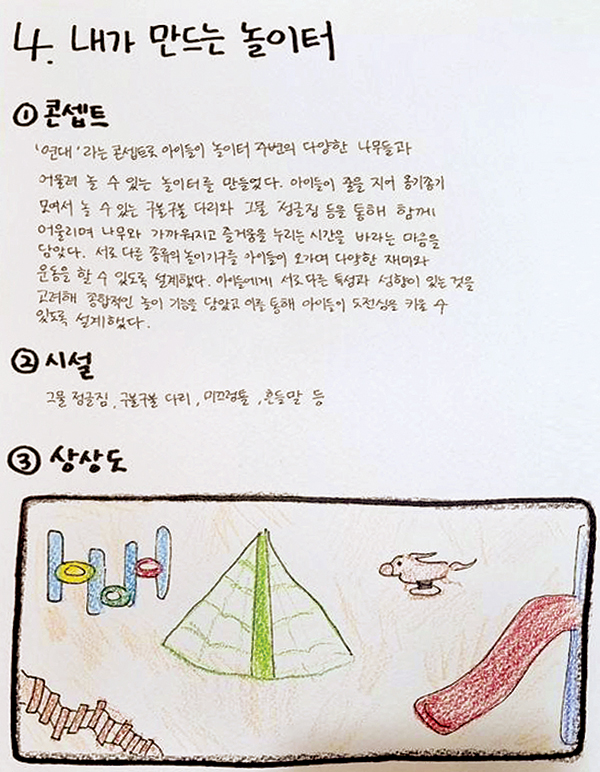 4. 내가 만드는 놀이터
① 콘셉트
'연대'라는 콘셉트로 아이들이 놀이터 주변의 다양한 나무들과
어울려 놀 수 있는 놀이터를 만들었다. 아이들이 줄을 지어 옹기종기
모여서 놀 수 있는 구불구불 다리와 그물 정글짐 등을 통해 함께
어울리며 나무와 가까워지고 즐거움을 누리는 시간을 바라는 마음을
담았다. 서로 다른 종류의 놀이기구를 아이들이 오가며 다양한 재미와
운동을 할 수 있도록 설계했다. 아이들에게 서로 다른 특성과 성향이 있는 것을
고려해 종합적인 놀이 기능을 담았고 이를 통해 아이들이 도전심을 키울 수
있도록 설계했다.
② 시설
그물 정글짐, 구불구불 다리, 미끄럼틀, 흔들말 등
③ 상상도